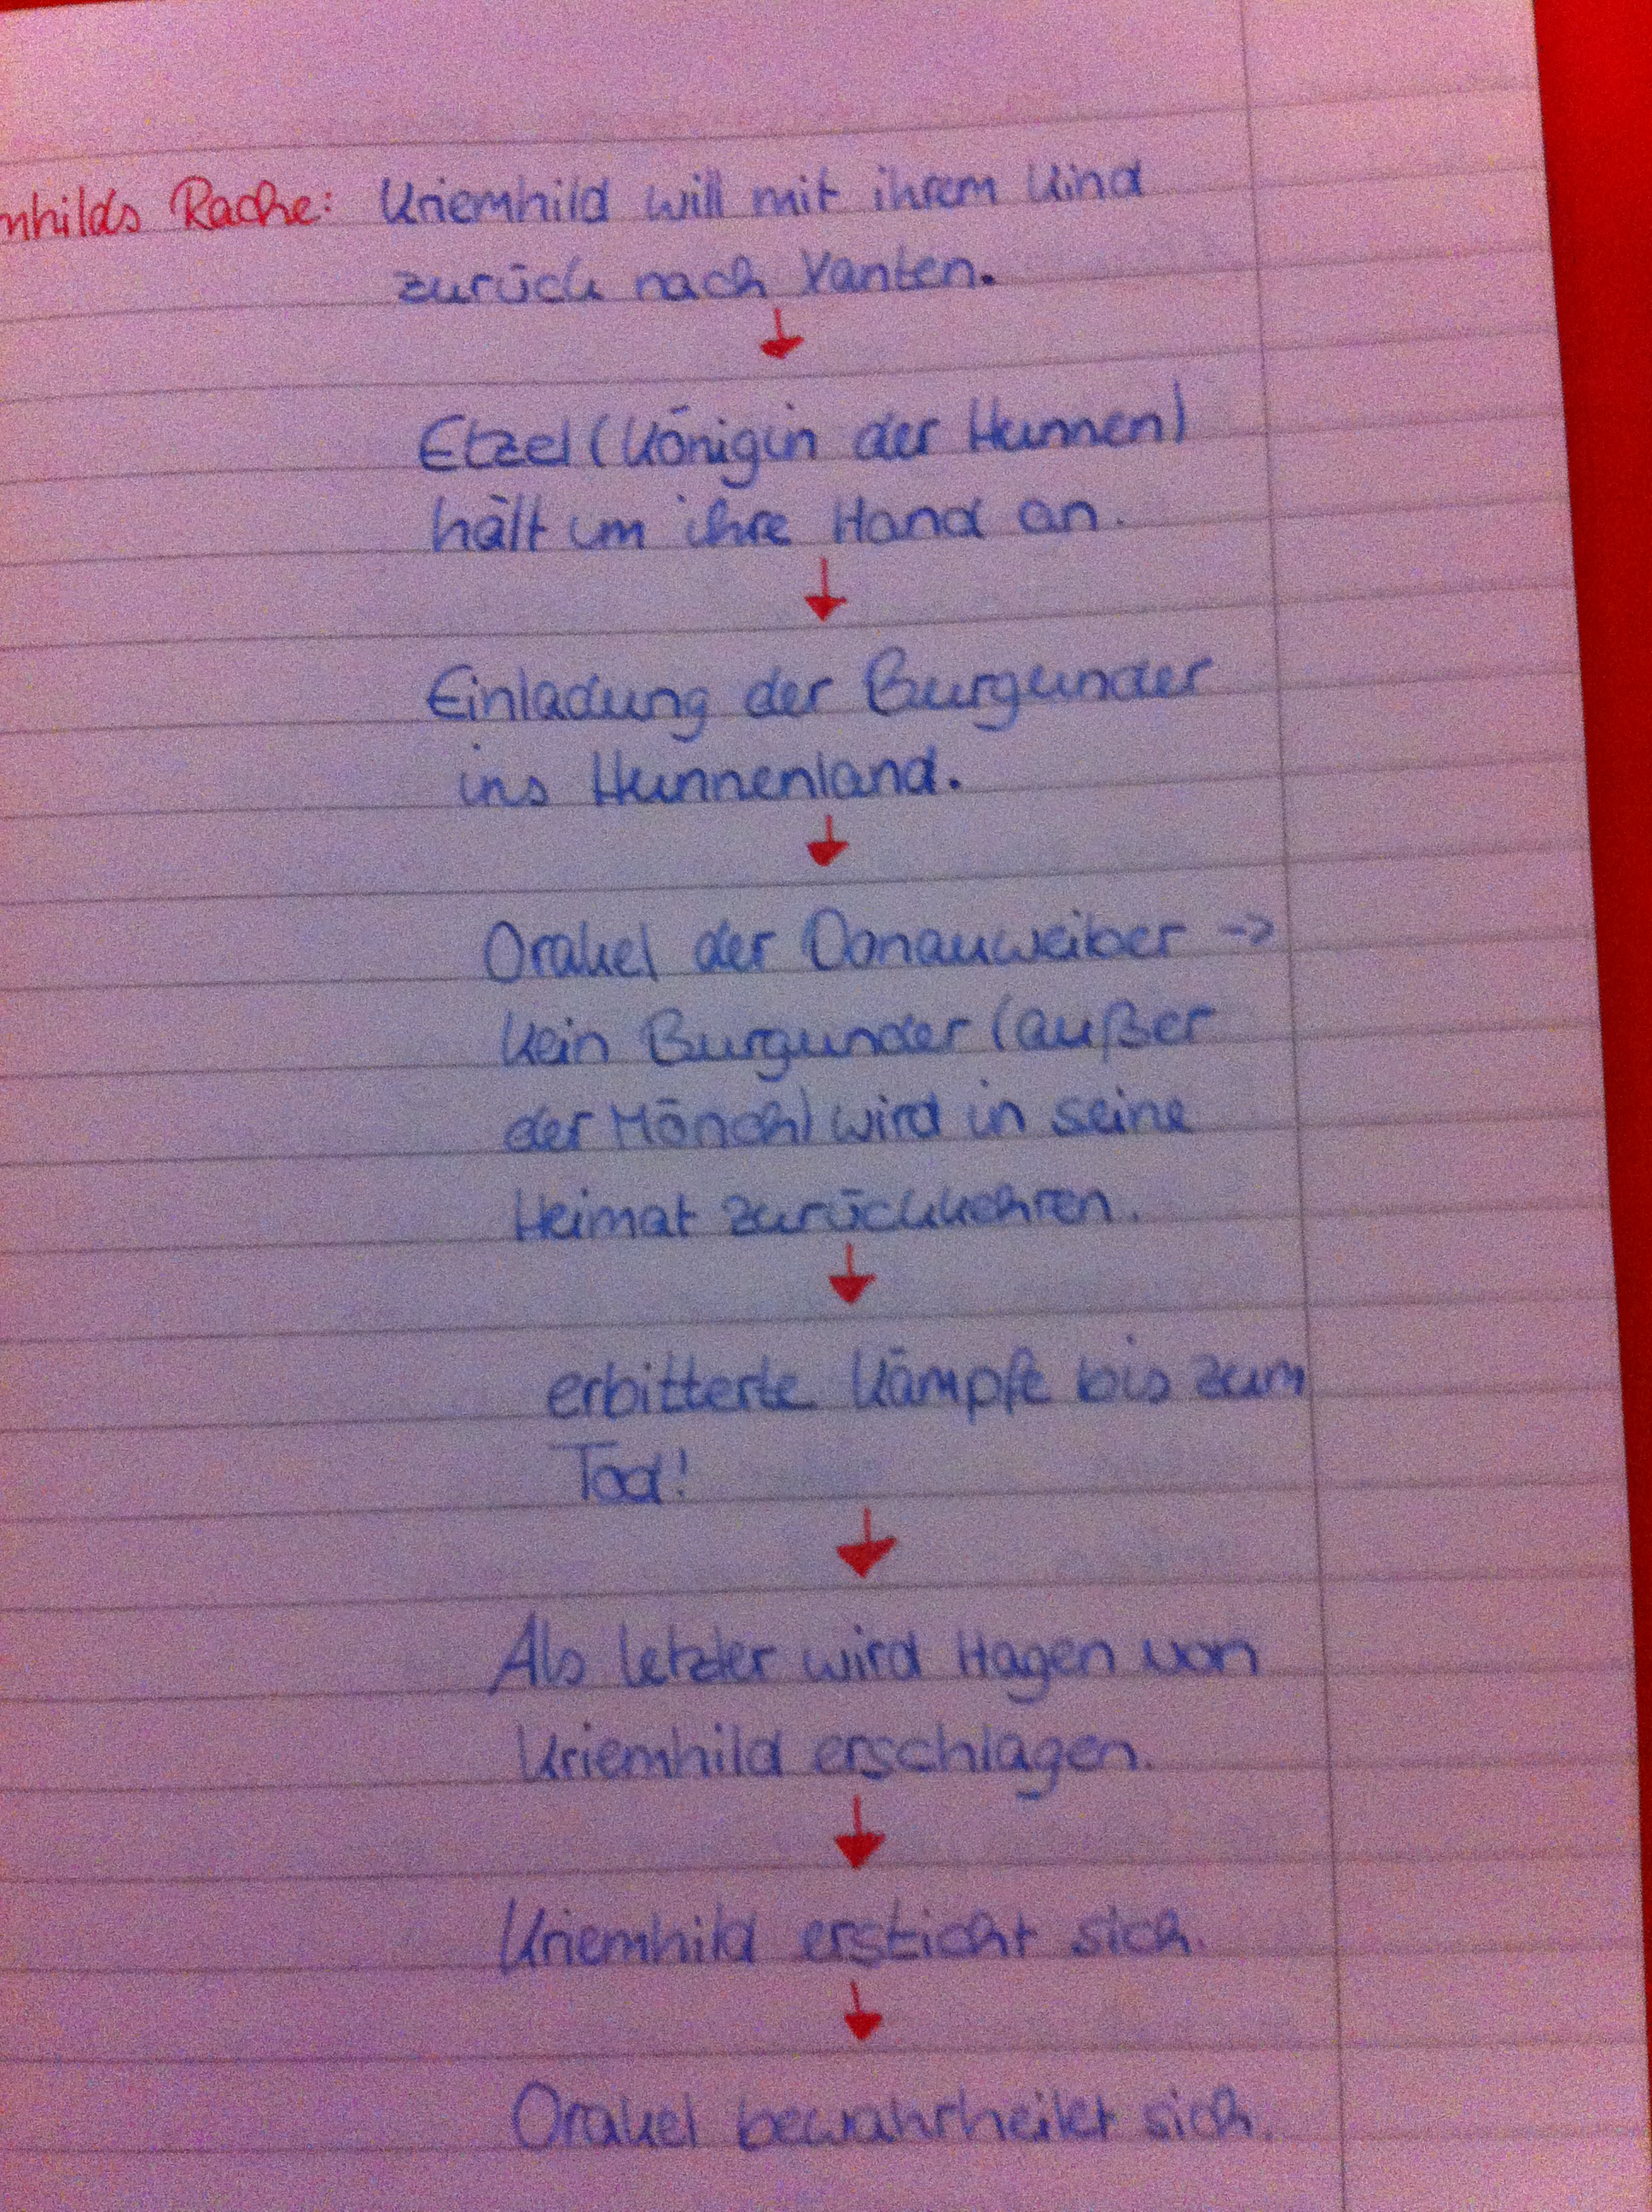 mhilds Rache: Kriemhild will mit ihrem Kind
zurück nach Xanten.
Etzel (Königin der Hunnen)
hält um ihre Hand an.
Einladung der Burgunder
ins Hunnenland.
Orakel der Donauweiber ->
kein Burgunder (außer
der Mönch) wird in seine
Heimat zurückkehren.
erbitterte Kämpfe bis zum
Tod!
Als letzter wird Hagen von
Kriemhild erschlagen.
Kriemhild ersticht sich.
Orakel bewahrheitet sich.